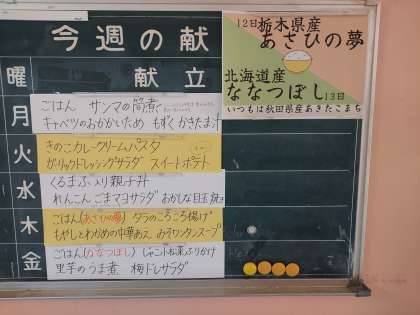 今週の献
12日 栃木県産
あさひの夢
北海道産
ななつぼし 13日
いつもは秋田県産あきたこまち
曜 献立
月 ごはん サンマの筒煮
キャベツのおかかいため もずくかきたま汁
火 きのこカレークリームパスタ
ガーリックドレッシングサラダ スイートポテト
水 くるまぶ入り親子丼
れんこんごまマヨサラダ おかしな目玉焼き
木 ごはん(あさひの夢) タラのころころ揚げ
もやしとわかめの中華あえ みそワンタンスープ
金 ごはん(ななつぼし) じゃこ小松菜ふりかけ
里芋のうま煮 梅ドレサラダ